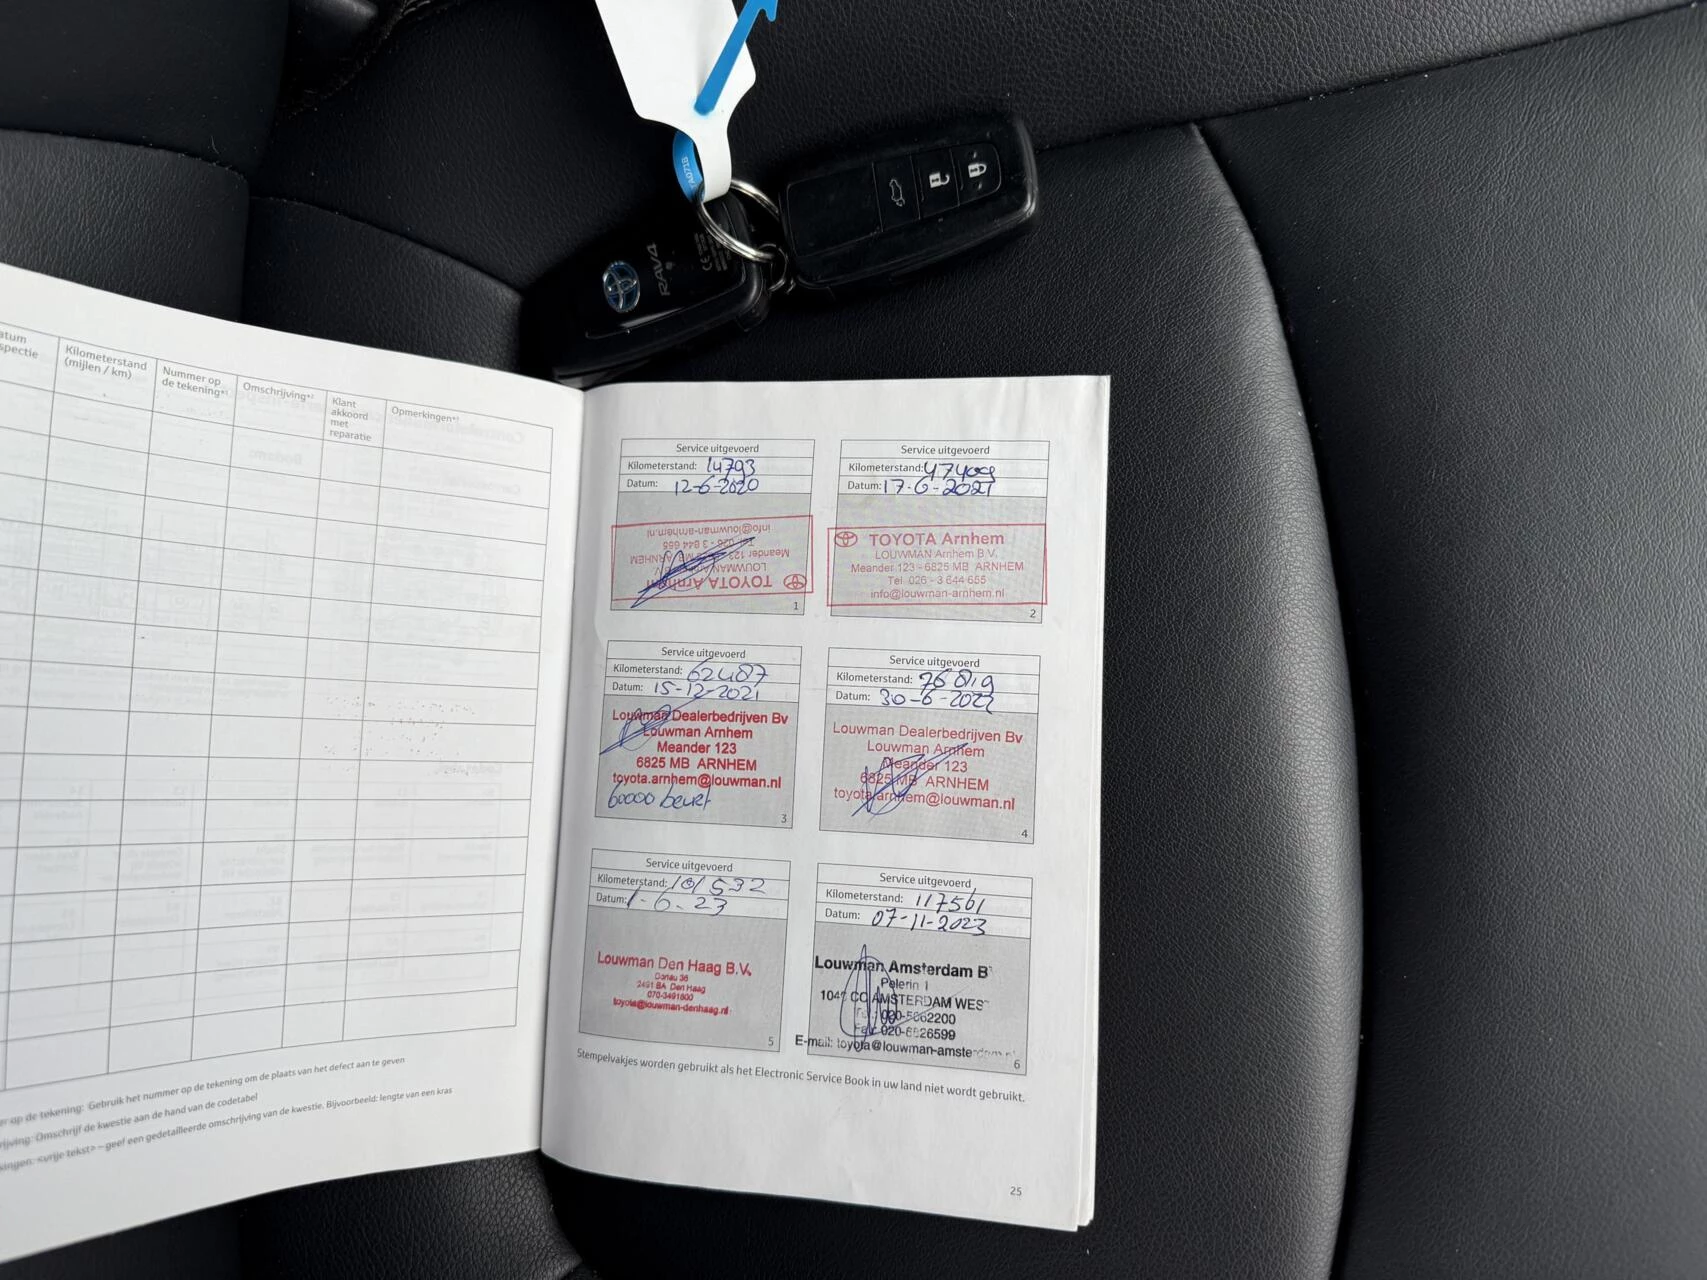 TA071B
RAV4
CE
atum
spectie
Kilometerstand
(mijlen / km)
Nummer op
de tekening*¹
Omschrijving*²
Klant
akkoord
met
reparatie
Opmerkingen*³
er op de tekening: Gebruik het nummer op de tekening om de plaats van het defect aan te geven
rijving: Omschrijf de kwestie aan de hand van de codetabel
kingen: <vrije tekst> – geef een gedetailleerde omschrijving van de kwestie. Bijvoorbeeld: lengte van een kras
Service uitgevoerd
Kilometerstand: 14793
Datum: 12-6-2020
TOYOTA Arnhem
LOUWMAN Arnhem B.V.
Meander 123 - 6825 MB ARNHEM
Tel. 026 - 3 644 655
info@louwman-arnhem.nl
1
Service uitgevoerd
Kilometerstand:
Datum: 17-6-2021
TOYOTA Arnhem
LOUWMAN Arnhem B.V.
Meander 123 - 6825 MB ARNHEM
Tel. 026 - 3 644 655
info@louwman-arnhem.nl
2
Service uitgevoerd
Kilometerstand: 62487
Datum: 15-12-2021
Louwman Dealerbedrijven Bv
Louwman Arnhem
Meander 123
6825 MB ARNHEM
toyota.arnhem@louwman.nl
60000 beurt
3
Service uitgevoerd
Kilometerstand: 76819
Datum: 30-6-2022
Louwman Dealerbedrijven Bv
Louwman Arnhem
Meander 123
6825 MB ARNHEM
toyota.arnhem@louwman.nl
4
Service uitgevoerd
Kilometerstand: 101532
Datum: 1-6-23
Louwman Den Haag B.V.
Donau 36
2491 BA Den Haag
070-3491800
toyota@louwman-denhaag.nl
5
Service uitgevoerd
Kilometerstand: 117561
Datum: 07-11-2023
Louwman Amsterdam B
Pelerin 1
CC AMSTERDAM WES
Tel.: 020-5862200
Fax: 020-6826599
E-mail: toyota@louwman-amsterdam.nl
6
Stempelvakjes worden gebruikt als het Electronic Service Book in uw land niet wordt gebruikt.
25